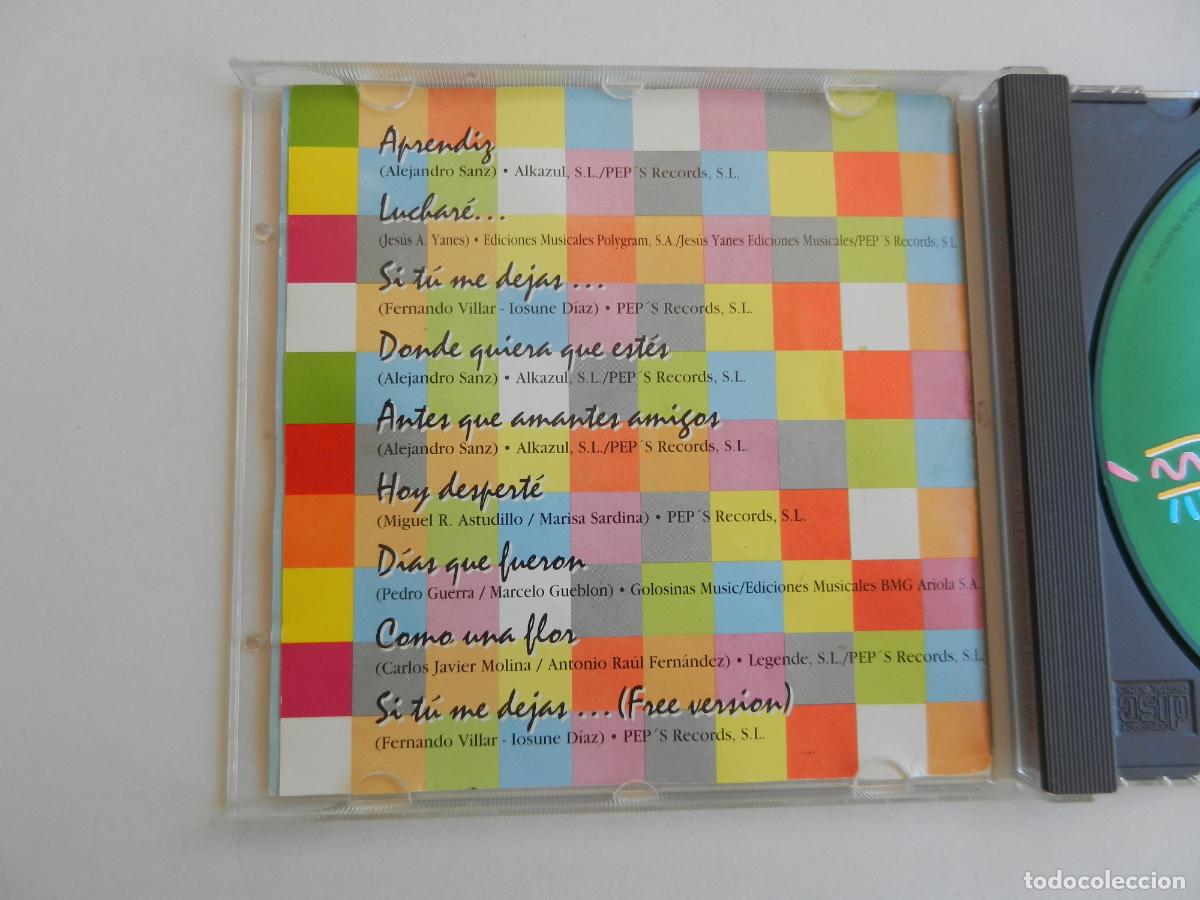 Aprendiz
(Alejandro Sanz) • Alkazul, S.L./PEP´S Records, S.L.
Lucharé...
(Jesús A. Yanes) • Ediciones Musicales Polygram, S.A./Jesús Yanes Ediciones Musicales/PEP´S Records, S.L.
Si tú me dejas ...
(Fernando Villar - Iosune Díaz) • PEP´S Records, S.L.
Donde quiera que estés
(Alejandro Sanz) • Alkazul, S.L./PEP´S Records, S.L.
Antes que amantes amigos
(Alejandro Sanz) • Alkazul, S.L./PEP´S Records, S.L.
Hoy desperté
(Miguel R. Astudillo / Marisa Sardina) • PEP´S Records, S.L.
Días que fueron
(Pedro Guerra / Marcelo Gueblon) • Golosinas Music/Ediciones Musicales BMG Ariola S.A.
Como una flor
(Carlos Javier Molina / Antonio Raúl Fernández) • Legende, S.L./PEP´S Records, S.L.
Si tú me dejas ...(Free version)
(Fernando Villar - Iosune Díaz) • PEP´S Records, S.L.
disc
todocoleccion